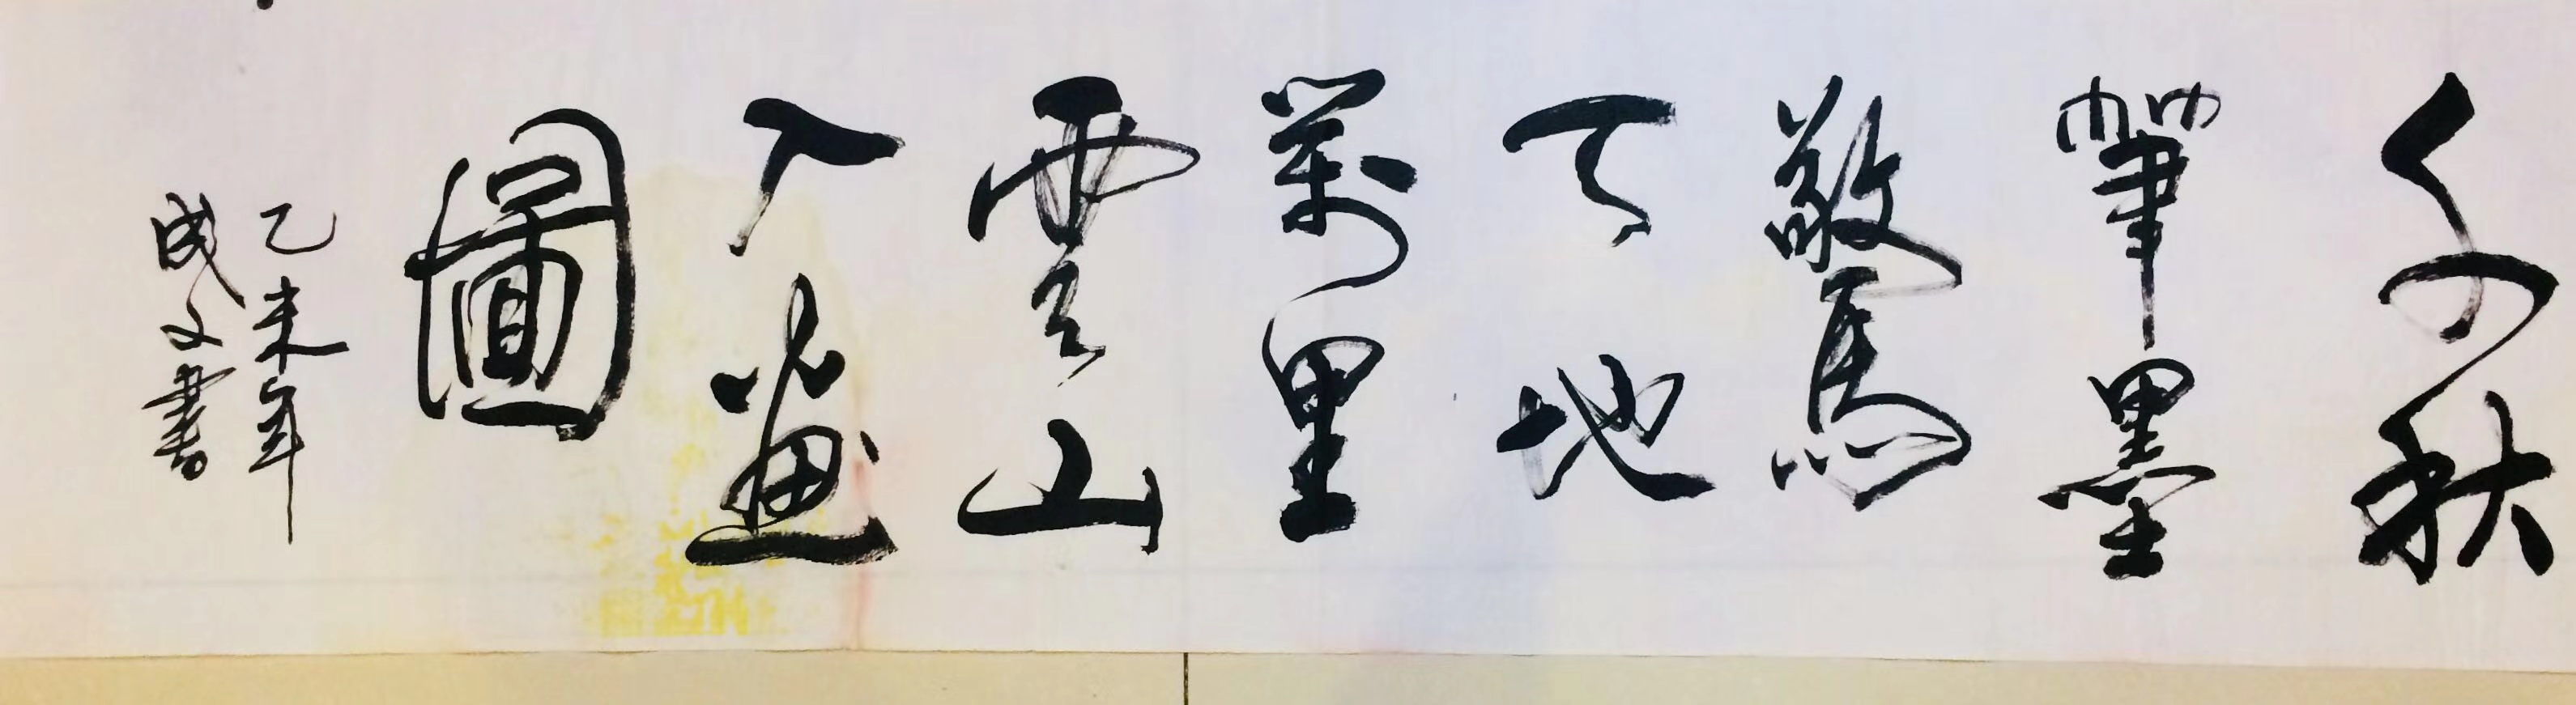 千秋
筆墨
驚
天地
萬里
雲山
入畫
圖
乙未年
成文書